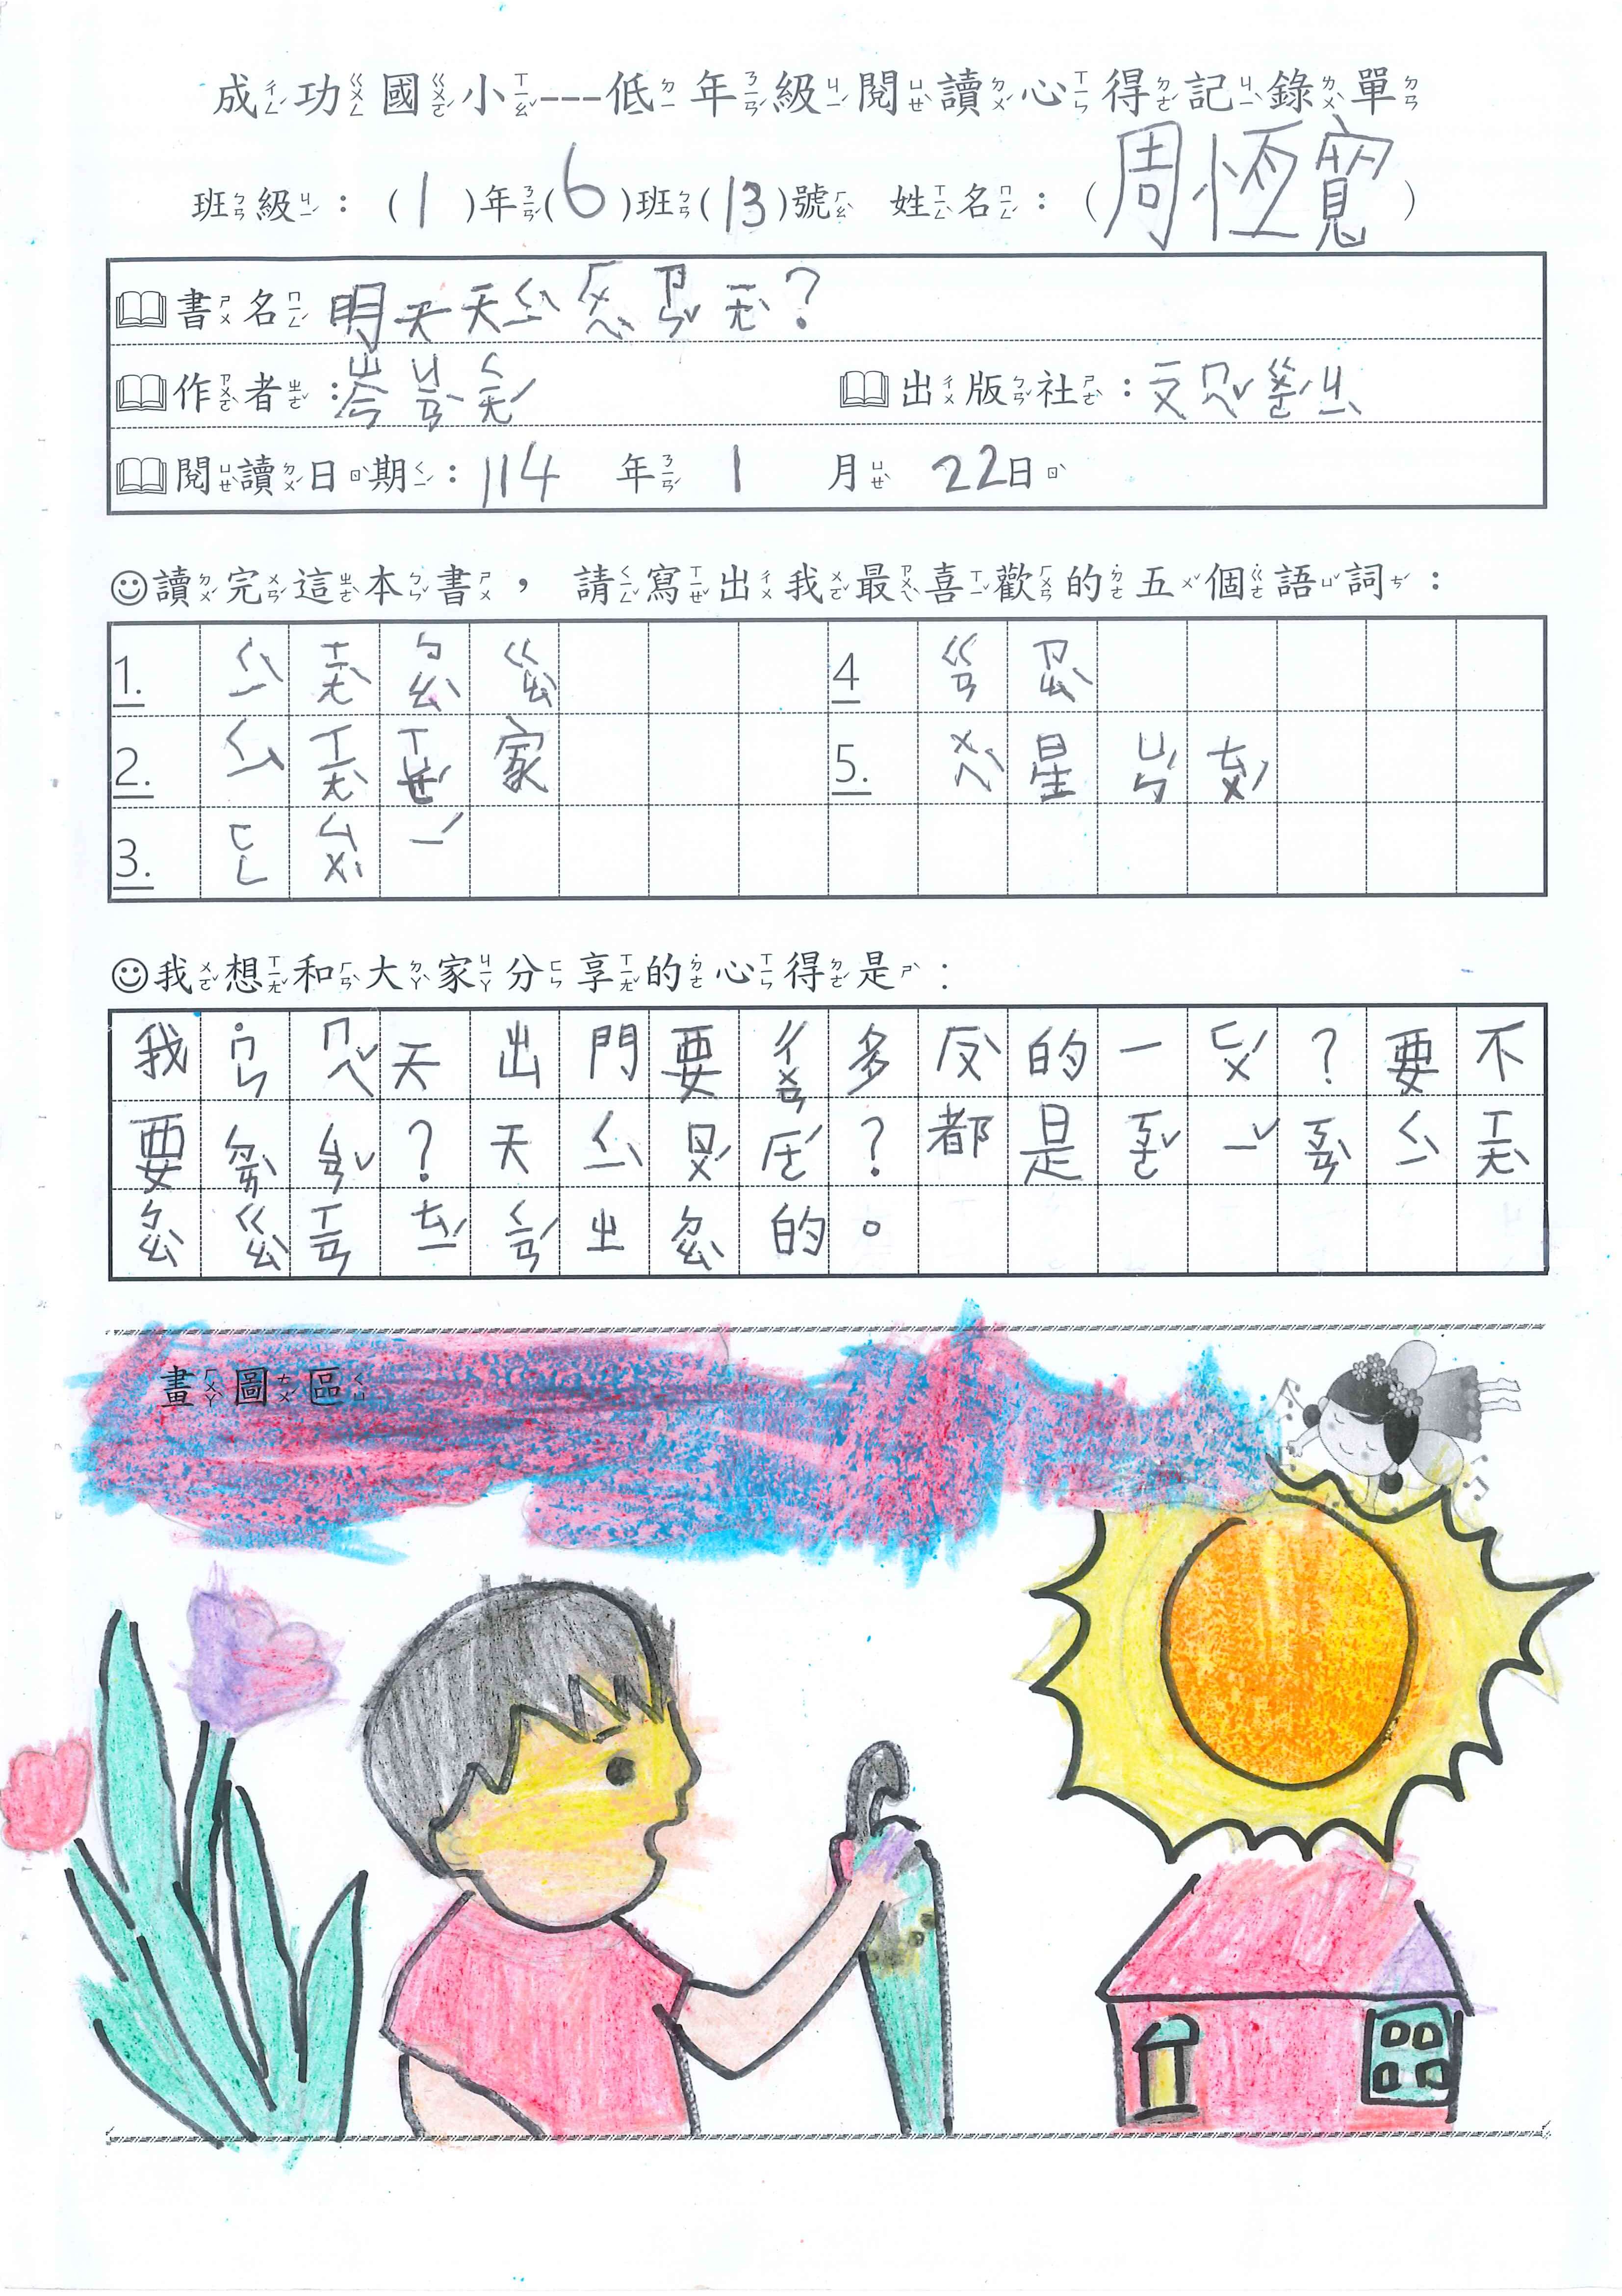 成功國小---低年級閱讀心得記錄單
班級：（1）年（6）班（13）號 姓名：（周恆寬）
書名 明天天ㄑㄧˋ ㄏㄨㄟˋ ㄗㄣˇ ㄧㄤˋ？
作者：岑ㄐㄧㄢˋ ㄑㄧㄤˊ 出版社：文
閱讀日期：114年1月22日
讀完這本書，請寫出我最喜歡的五個語詞：
1. ㄑㄧˋ ㄒㄧㄤˋ ㄅㄠˋ ㄍㄠˋ 4 ㄍㄢ ㄗㄠˋ
2. ㄑㄧˋ ㄒㄧㄤˋ ㄒㄩㄝˊ 家 5. ㄨㄟˋ 星 ㄩㄣˊ ㄊㄨˊ
3. ㄈㄥ ㄙㄨˋ ㄧˊ
我想和大家分享的心得是：
我 ˙ㄇㄣ ㄇㄟˇ 天出門要 ㄔㄨㄢ 多 ㄏㄡˋ 的一 ㄈㄨˊ ？要不
要 ㄉㄞˋ ㄙㄢˇ ？天 ㄑㄧˋ ㄖㄨˊ ㄏㄜˊ ？都是 ㄎㄜˇ ㄧˇ ㄎㄢˋ ㄑㄧˋ ㄒㄧㄤˋ
ㄅㄠˋ ㄍㄠˋ ㄒㄧㄢ ㄊㄧˊ ㄑㄧㄢˊ ㄓ ㄉㄠˋ 的。
畫圖區